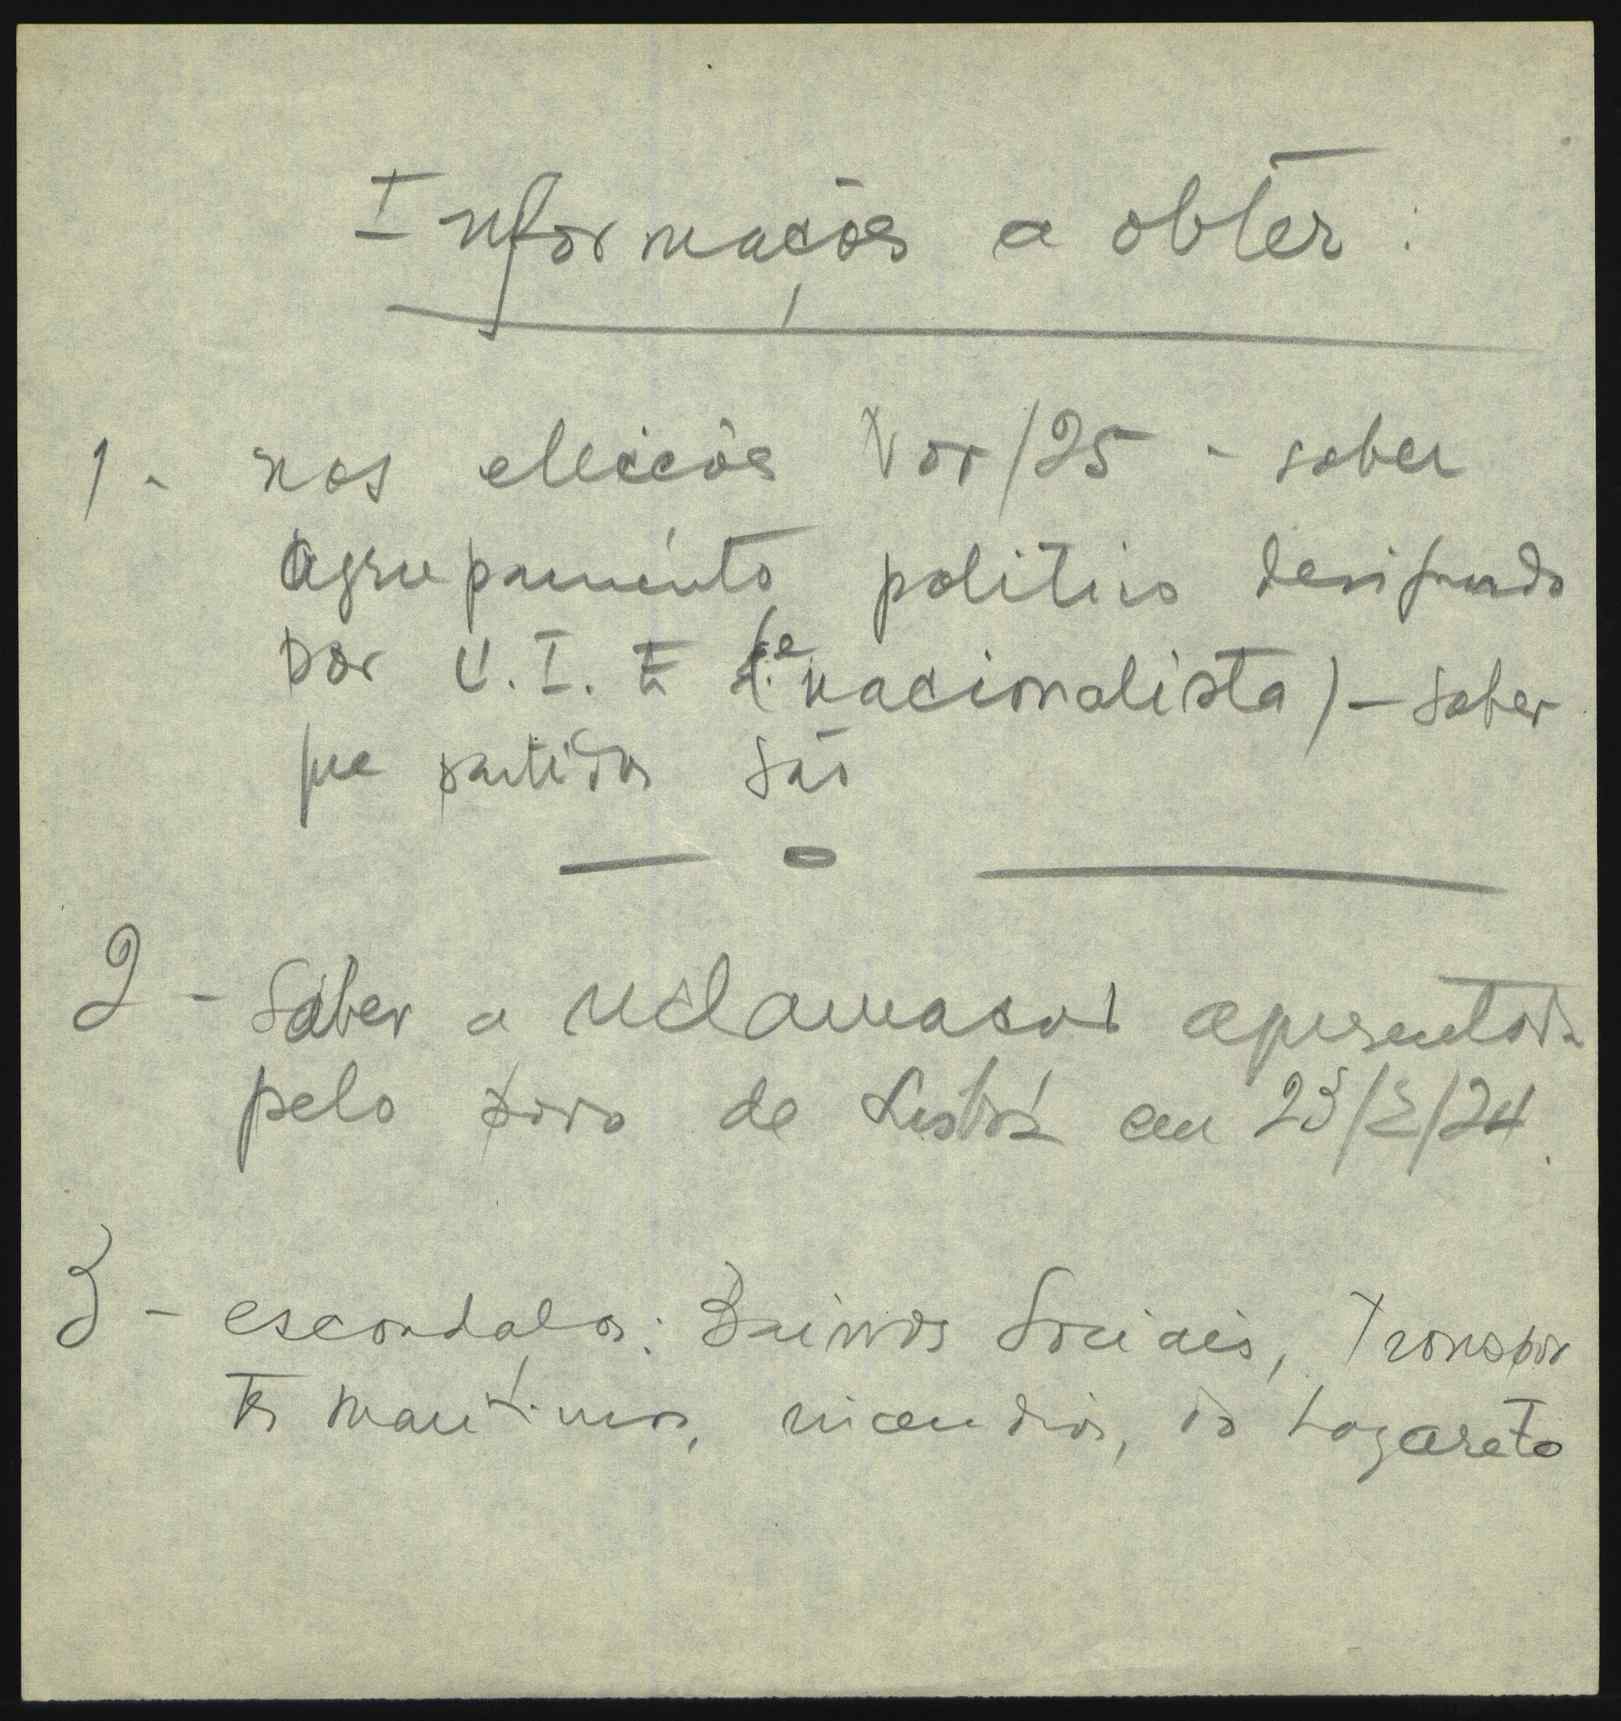 Informações a obter:
1 - nas eleições Nov/25 - saber
agrupamento politico designado
por U.I.E (e nacionalista) - saber
que partidos são
2 - Saber a reclamação apresentada
pelo povo de Lisboa em 23/2/24.
3 - escandalos: Bairros Sociais, Transpor
tes maritimos, incendios, do Lazareto